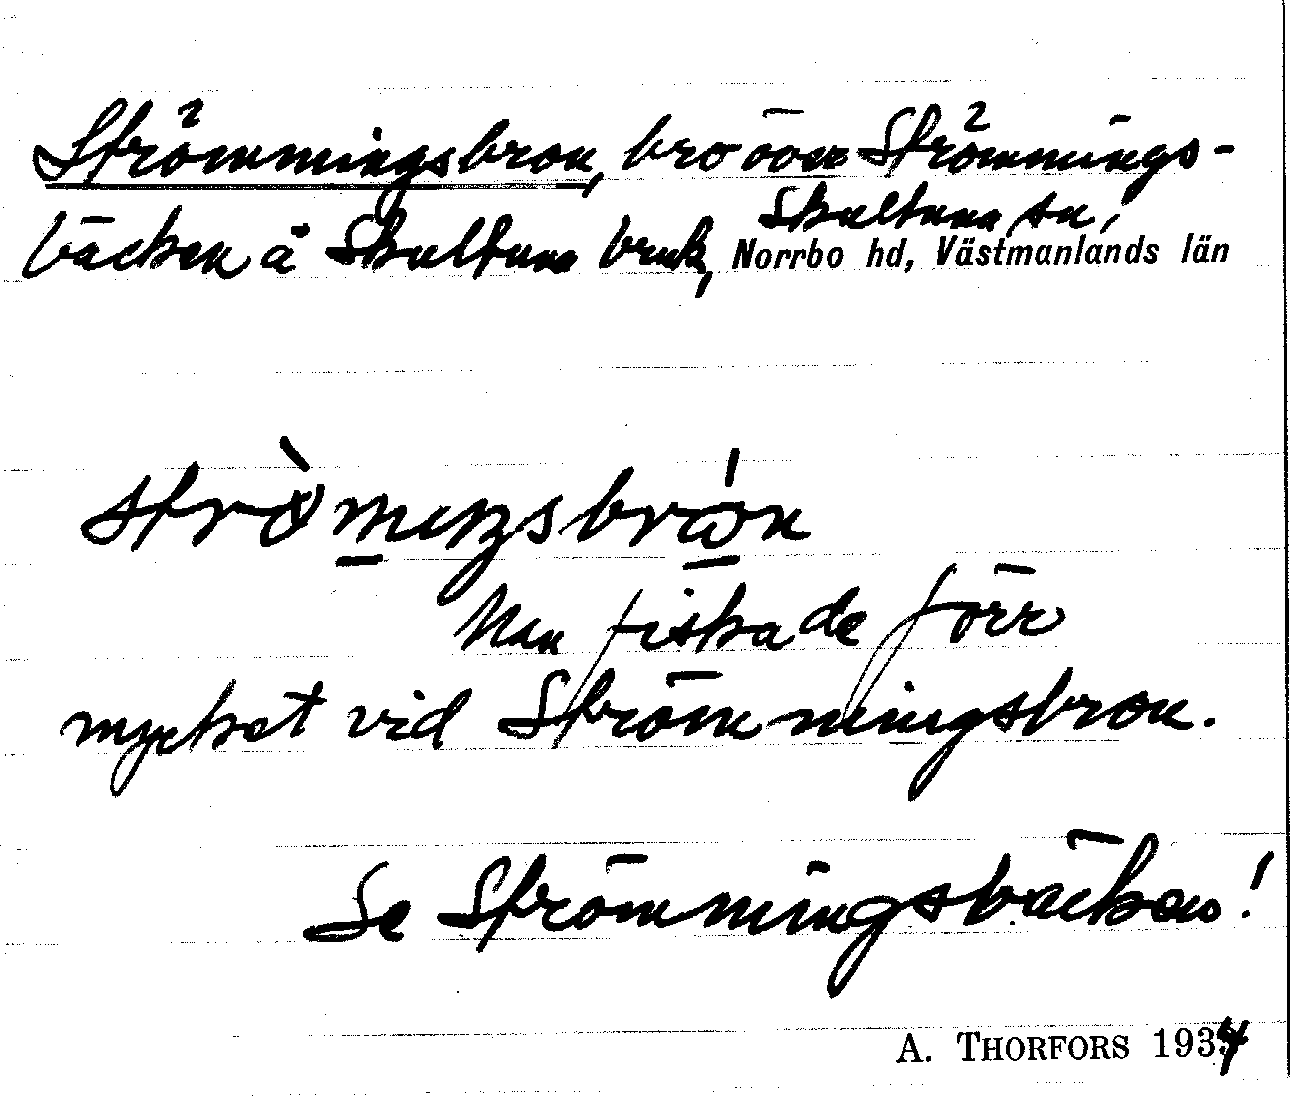 Strömmingsbron, bro över Strömmings-
bäcken å Skultuna bruk, Skultuna sn, Norrbo hd, Västmanlands län
Man fiskade förr
mycket vid Strömmingsbron.
Se Strömmingsbäcken!
A. THORFORS 1934